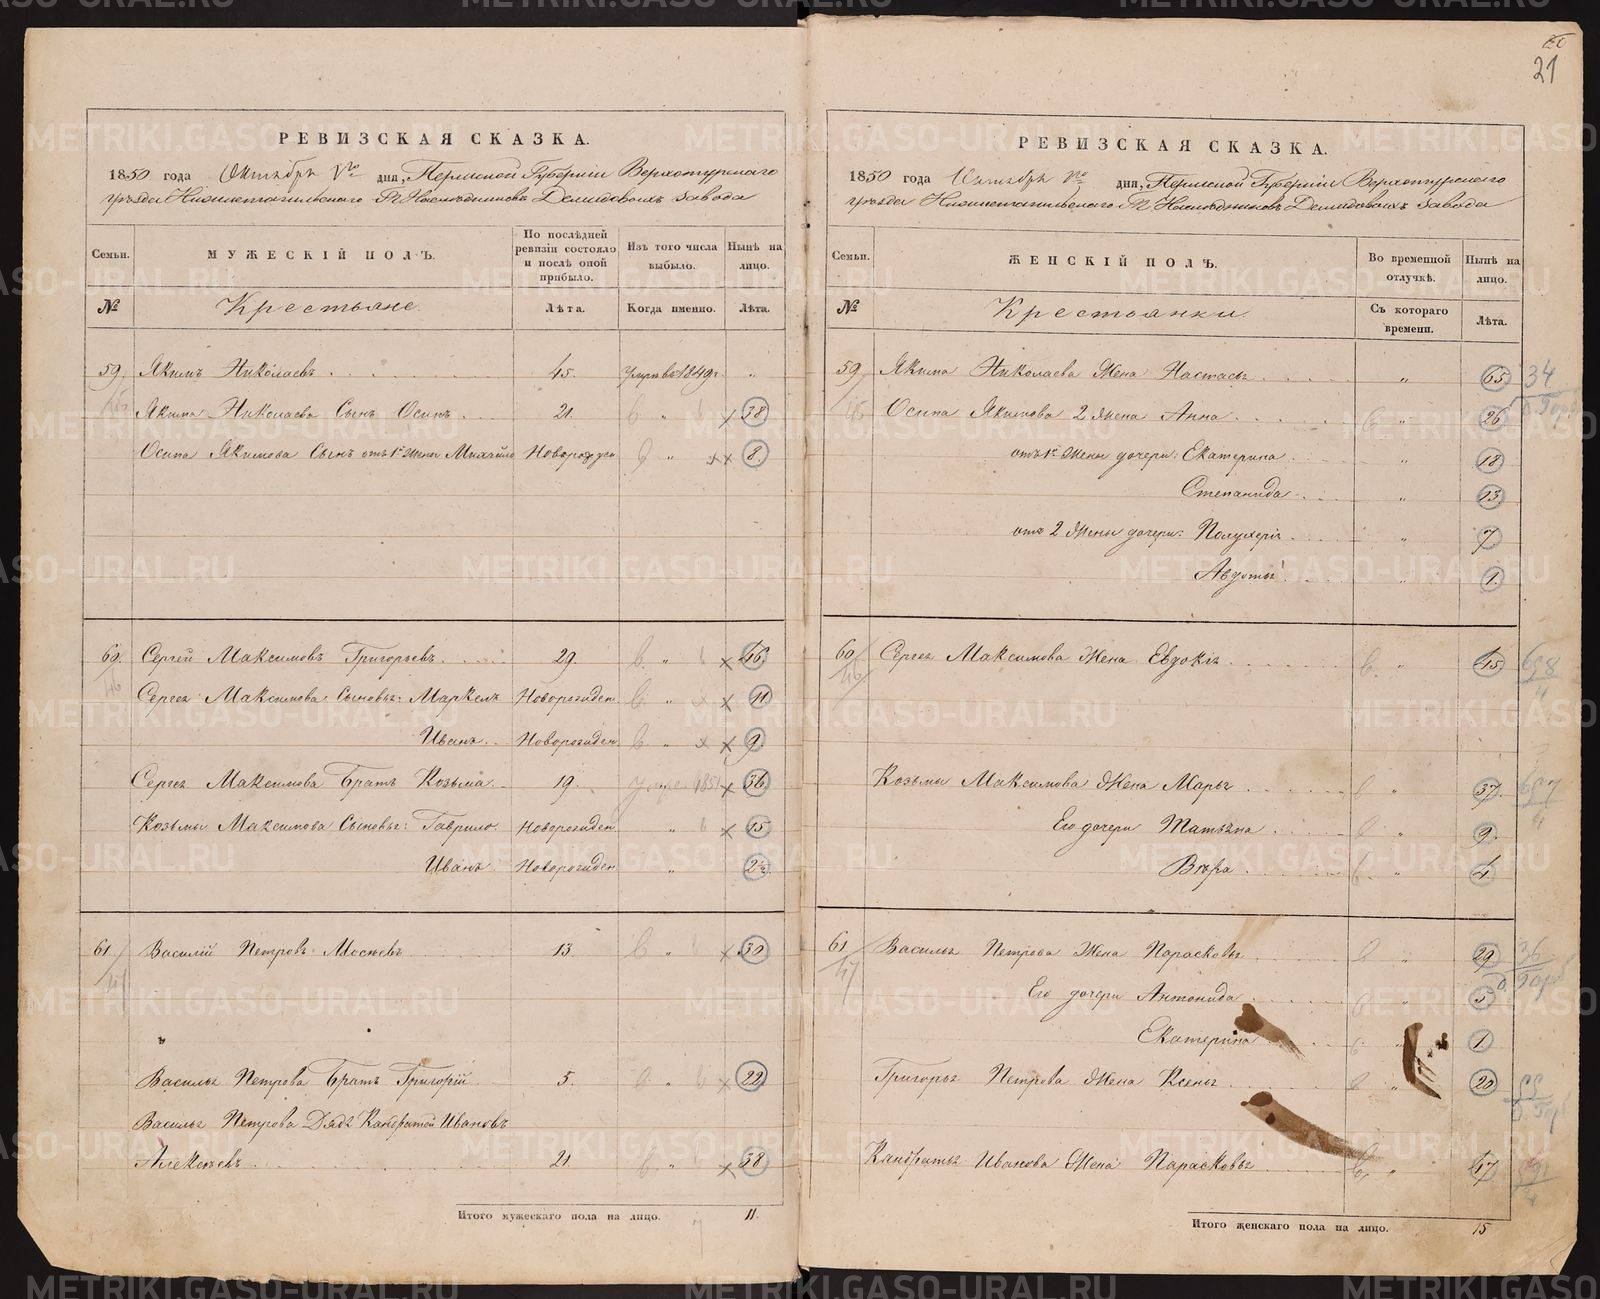 21
РЕВИЗСКАЯ СКАЗКА.
1850 года Октября дня, Пермской Губерніи Верхотурскаго
уѣзда Нижнетагильскаго Гг Наслѣдниковъ Демидовыхъ завода
Семьи. МУЖЕСКІЙ ПОЛЪ. По послѣдней ревизіи состояло и послѣ оной прибыло. Изъ того числа выбыло. Нынѣ на лицо.
№ Крестьяне. Лѣта. Когда именно. Лѣта.
59. Якимъ Николаевъ 45. умръ въ 1849 г. "
Якима Николаева Сынъ Осипъ 21. " 38
Осипа Якимова Сынъ отъ 1й жены Михайло Новорожден " 8.
60. Сергей Максимовъ Григорьевъ 29. " 46
46 Сергея Максимова Сыновья: Маркелъ Новорожден " 11
Иванъ Новорожден " 9.
Сергея Максимова Братъ Козьма 19. 36
Козьмы Максимова Сыновья: Гаврило Новорожден " 15
Иванъ Новорожден " 2½
61. Василій Петровъ Мосѣевъ 13. " 30
47
Василья Петрова Братъ Григорій 5. " 22
Василья Петрова Дядя Кандратей Ивановъ
Алексѣевъ 21. " 38
Итого мужескаго пола на лицо. 11.
РЕВИЗСКАЯ СКАЗКА.
1850 года Октября дня, Пермской Губерніи Верхотурскаго
уѣзда Нижнетагильскаго Гг Наслѣдниковъ Демидовыхъ завода
Семьи. ЖЕНСКІЙ ПОЛЪ. Во временной отлучкѣ. Нынѣ на лицо.
№ Крестьянки Съ котораго времени. Лѣта.
59. Якима Николаева Жена Настасья " 65 34
Осипа Якимова 2 жена Анна " 26
отъ 1й жены дочери: Екатерина " 18
Степанида " 13.
отъ 2 жены дочери: Полухерія " 7
Авдотья " 1.
60. Сергея Максимова Жена Евдокія " 45
46
Козьмы Максимова Жена Марья " 37
Его дочери Татьяна " 9.
Вѣра " 4.
61 Василья Петрова Жена Парасковья " 29 36
47 Его дочери Антонида " 5
Екатерина " 1
Григорья Петрова Жена Ксенья " 20
Кандратья Иванова Жена Парасковья " 47
Итого женскаго пола на лицо. 15
METRIKI.GASO-URAL.RU